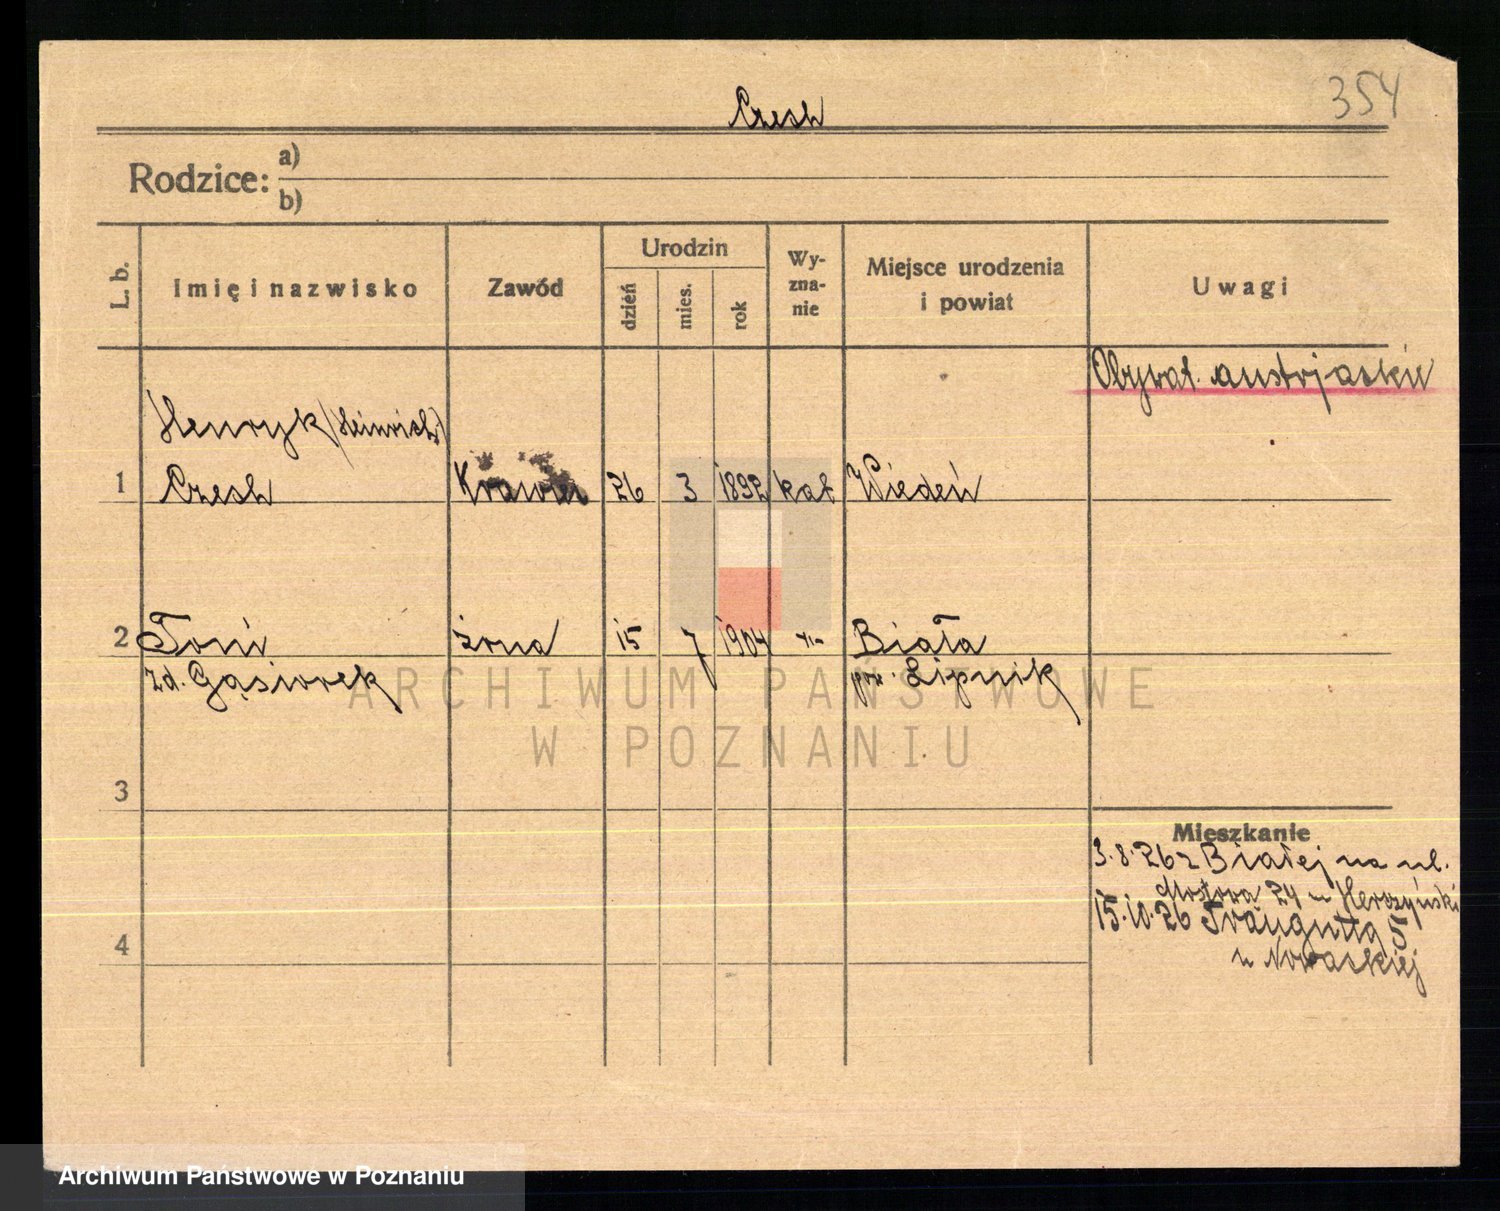 354
Czesh
Rodzice: a)
b)
L. b. Imię i nazwisko Zawód Urodzin dzień mies. rok Wy-zna-nie Miejsce urodzenia i powiat Uwagi
Obywat. austrjackie
Henryk (Heinrich)
1 Czesh Krawiec 26 3 1892 kat Wiedeń
2 Toni żona 15 7 1904 -"- Biała
zd. Gąsiorek pow. Lipnik
ARCHIWUM PAŃSTWOWE
W POZNANIU
3
Mieszkanie
3.8.26 z Białej na ul.
Mostowa 24 u Herczyński
15.10.26 Traugutta 5
4
u Nowackiej
Archiwum Państwowe w Poznaniu